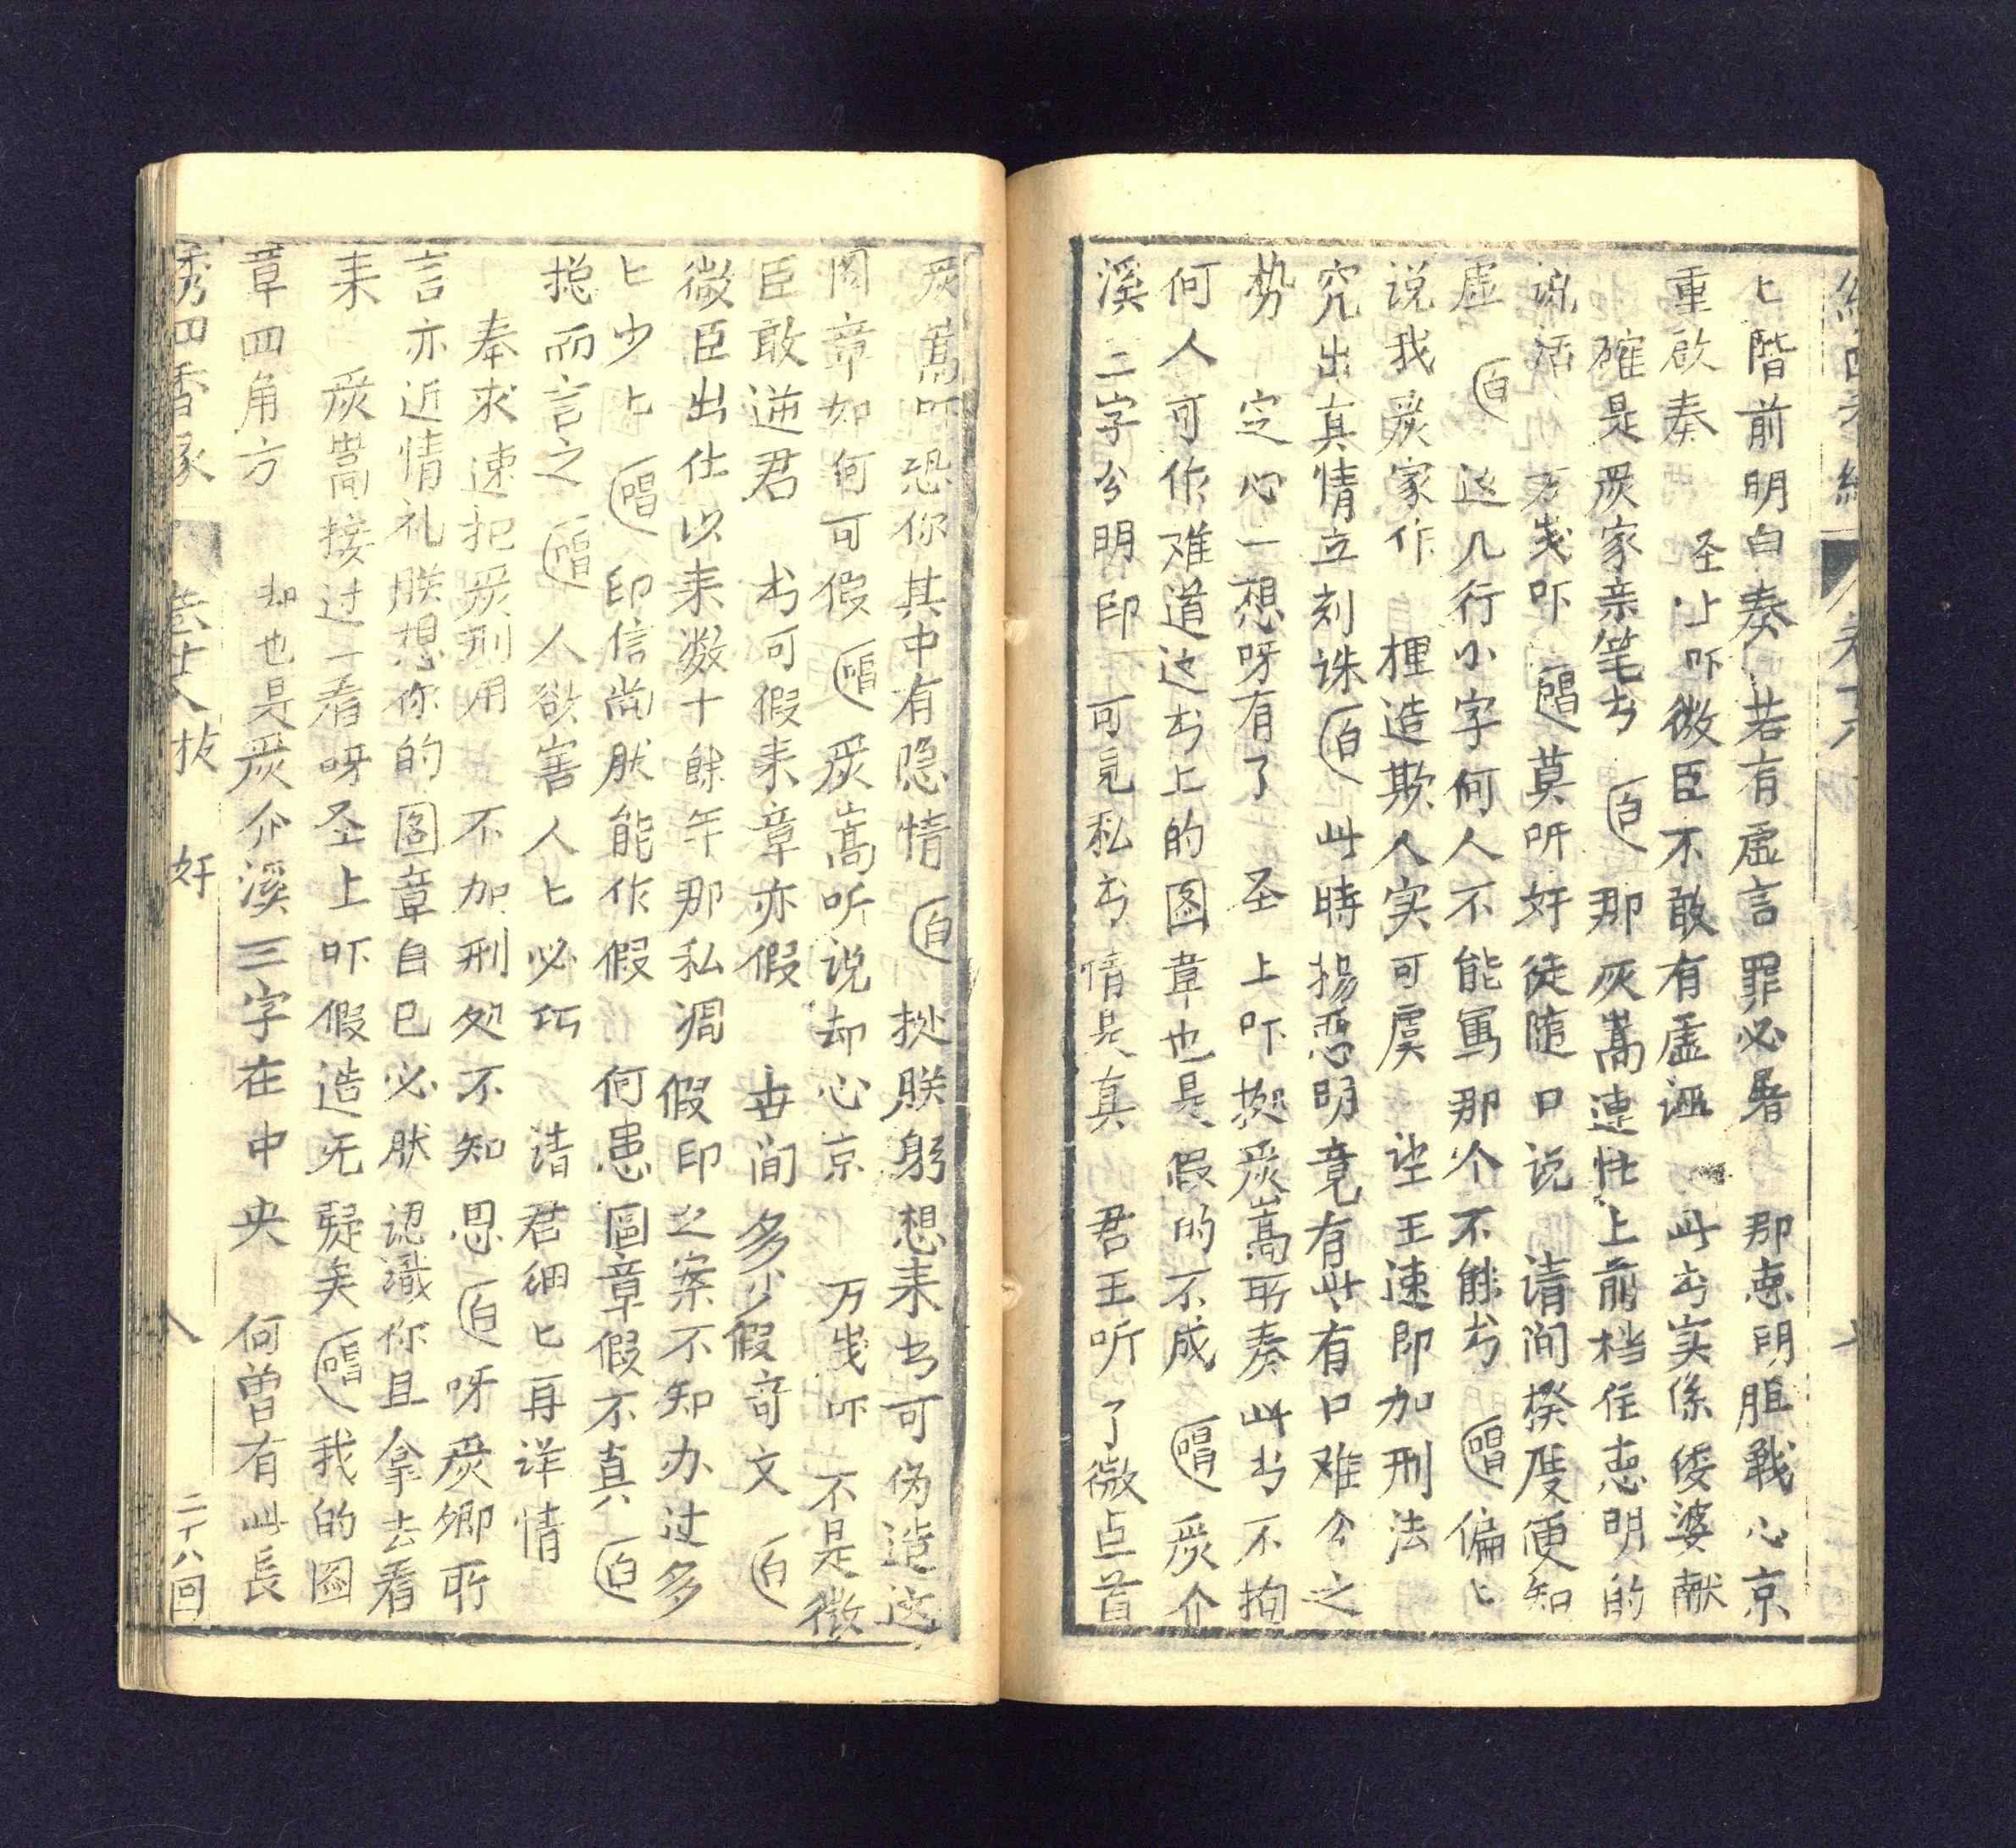 上階前明白奏 若有虛言罪必署 那惠明胆战心京
重啟奏 圣上吓微臣不敢有虛诬 此书实係倭婆献
確是炭家亲笔书 白 那灰嵩連忙上前档住惠明的
说话 万歲吓 唱 莫听奸徒随口说 请问揆度便知
虛 白 这几行小字何人不能寫那个不能书 唱 偏ヒ
说我炭家作 捏造欺人实可虞 望王速即加刑法
究出真情立刻诛 白 此時揚惡明竟有此有口难分之
势 定心一想呀有了 圣上吓 据炭嵩所奏此书不拘
何人可作难道这书上的图章也是假的不成 唱 炭介
溪二字分明印 可見私书情是真 君王听了微点首
炭嵩吓恐你其中有隐情 白 拠朕躬想耒书可偽造这
图章如何可假 唱 炭嵩听说却心京 万歲吓不是微
臣敢逆君 书可假耒章亦假 世间多少假奇文 白
微臣出仕以耒数十餘年那私凋假印之案不知办过多
ヒ少ヒ 唱 印信尚肰能作假 何患圖章假不真 白
捴而言之 唱 人欲害人ヒ必巧 请君细ヒ再详情
奉求速把炭刑用 不加刑処不知恩 白 呀炭卿所
言亦近情礼朕想你的图章自己必肰認識你且拿去看
耒 炭嵩接过一看呀圣上吓假造无疑矣 唱 我的图
章四角方 却也是炭介溪三字在中央 何曾有此長
绣四香缘 卷廿八 扳奸 八 二十八回